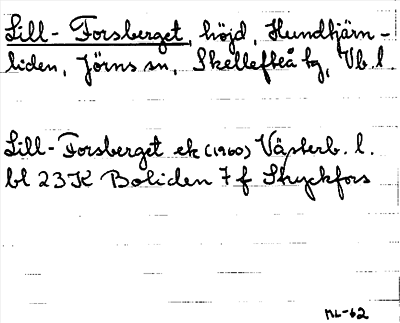 Lill-Forsberget, höjd, Hundtjärn-
liden, Jörns sn, Skellefteå kg, Vb. l.
Lill-Forsberget ek (1960) Västerb. l.
bl 23K Boliden 7 f Stryckfors
ML-62